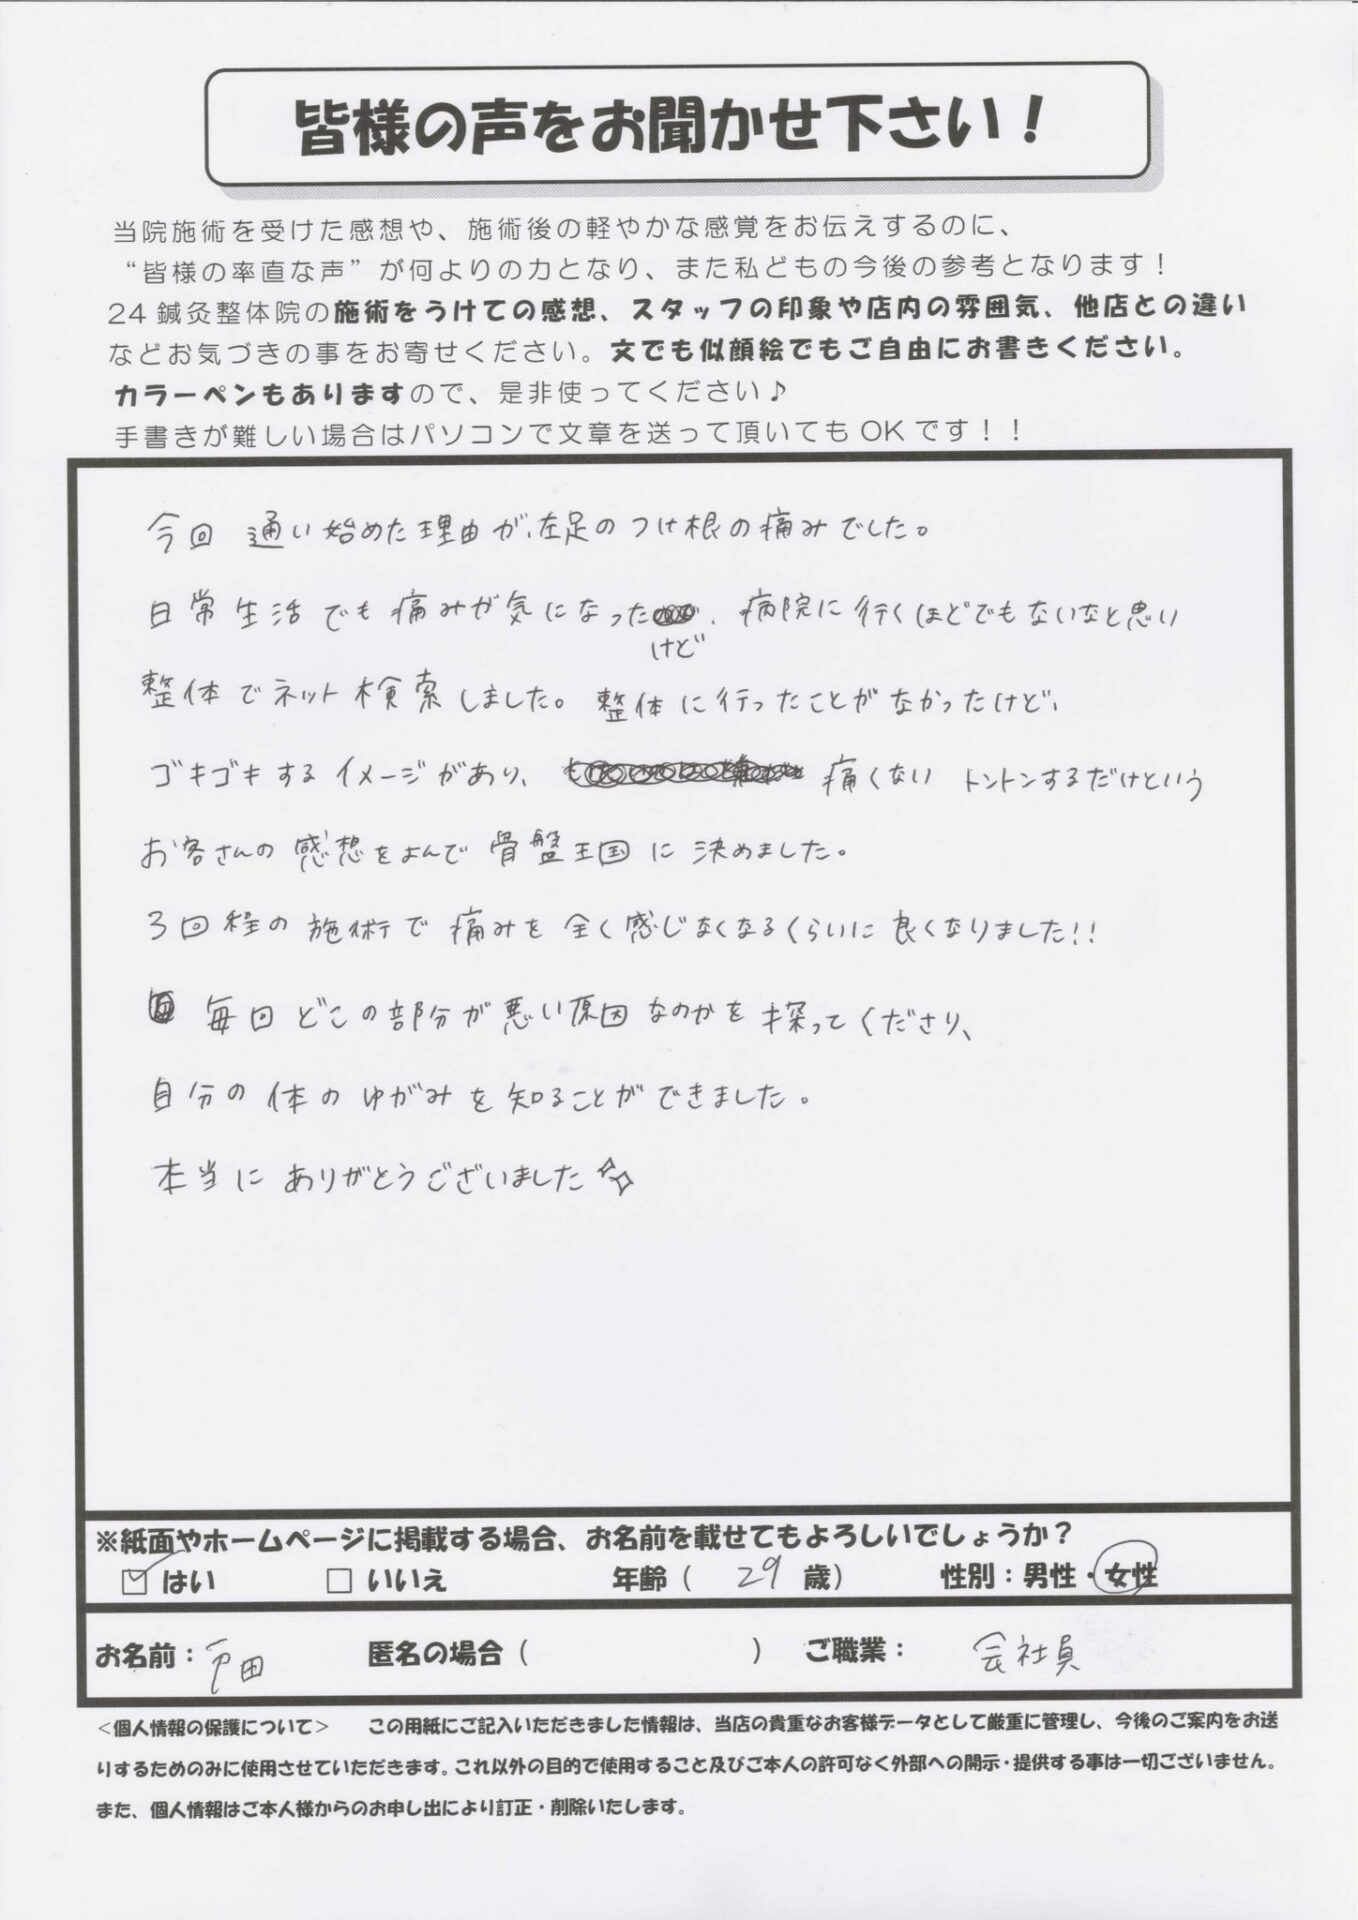 皆様の声をお聞かせ下さい！
当院施術を受けた感想や、施術後の軽やかな感覚をお伝えするのに、
“皆様の率直な声”が何よりの力となり、また私どもの今後の参考となります！
24鍼灸整体院の施術をうけての感想、スタッフの印象や店内の雰囲気、他店との違い
などお気づきの事をお寄せください。文でも似顔絵でもご自由にお書きください。
カラーペンもありますので、是非使ってください♪
手書きが難しい場合はパソコンで文章を送って頂いてもOKです！！
今回 通い始めた理由が、左足のつけ根の痛みでした。
日常生活でも痛みが気になったけど、病院に行くほどでもないなと思い
整体でネット検索しました。整体に行ったことがなかったけど、
ゴキゴキするイメージがあり、痛くない トントンするだけという
お客さんの感想をよんで骨盤王国に決めました。
3回程の施術で痛みを全く感じなくなるくらいに良くなりました!!
毎回どこの部分が悪い原因なのかを探ってくださり、
自分の体のゆがみを知ることができました。
本当にありがとうございました
※紙面やホームページに掲載する場合、お名前を載せてもよろしいでしょうか？
☑ はい □ いいえ 年齢（ 29 歳） 性別：男性・女性
お名前：戸田 匿名の場合（ ） ご職業： 会社員
＜個人情報の保護について＞ この用紙にご記入いただきました情報は、当店の貴重なお客様データとして厳重に管理し、今後のご案内をお送
りするためのみに使用させていただきます。これ以外の目的で使用すること及びご本人の許可なく外部への開示・提供する事は一切ございません。
また、個人情報はご本人様からのお申し出により訂正・削除いたします。